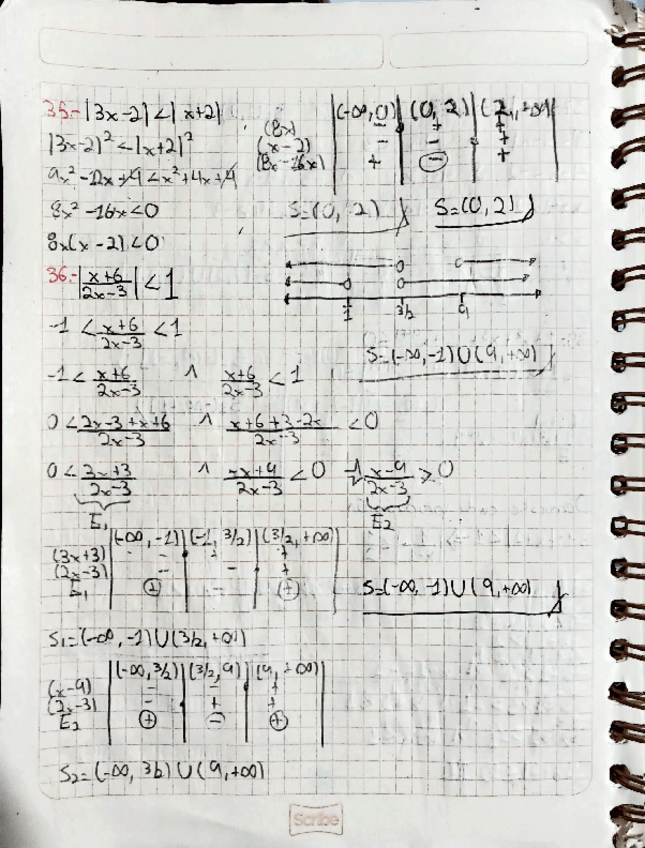 35.- |3x-2| < |x+2|
|3x-2|² < |x+2|²
9x² - 12x + 4 < x² + 4x + 4
8x² - 16x < 0
8x(x-2) < 0
(-∞, 0) (0, 2) (2, +∞)
(8x) - + +
(x-2) - - +
(8x-16x) + - +
S=(0, 2) S=(0, 2)
36.- |x+6 / 2x-3| < 1
-1 < x+6 / 2x-3 < 1
-1 < x+6 / 2x-3 ∧ x+6 / 2x-3 < 1
0 < 2x-3+x+6 / 2x-3 ∧ x+6+3-2x / 2x-3 < 0
0 < 3x+3 / 2x-3 ∧ -x+9 / 2x-3 < 0 x-9 / 2x-3 > 0
E₁ E₂
-1 3/2 9
S=(-∞, -1)∪(9, +∞)
(-∞, -1) (-1, 3/2) (3/2, +∞)
(3x+3) - + +
(2x-3) - - +
E₁ + - +
S=(-∞, -1)∪(9, +∞)
S₁=(-∞, -1)∪(3/2, +∞)
(-∞, 3/2) (3/2, 9) (9, +∞)
(x-9) - - +
(2x-3) - + +
E₂ + - +
S₂=(-∞, 3/2)∪(9, +∞)
Scribe